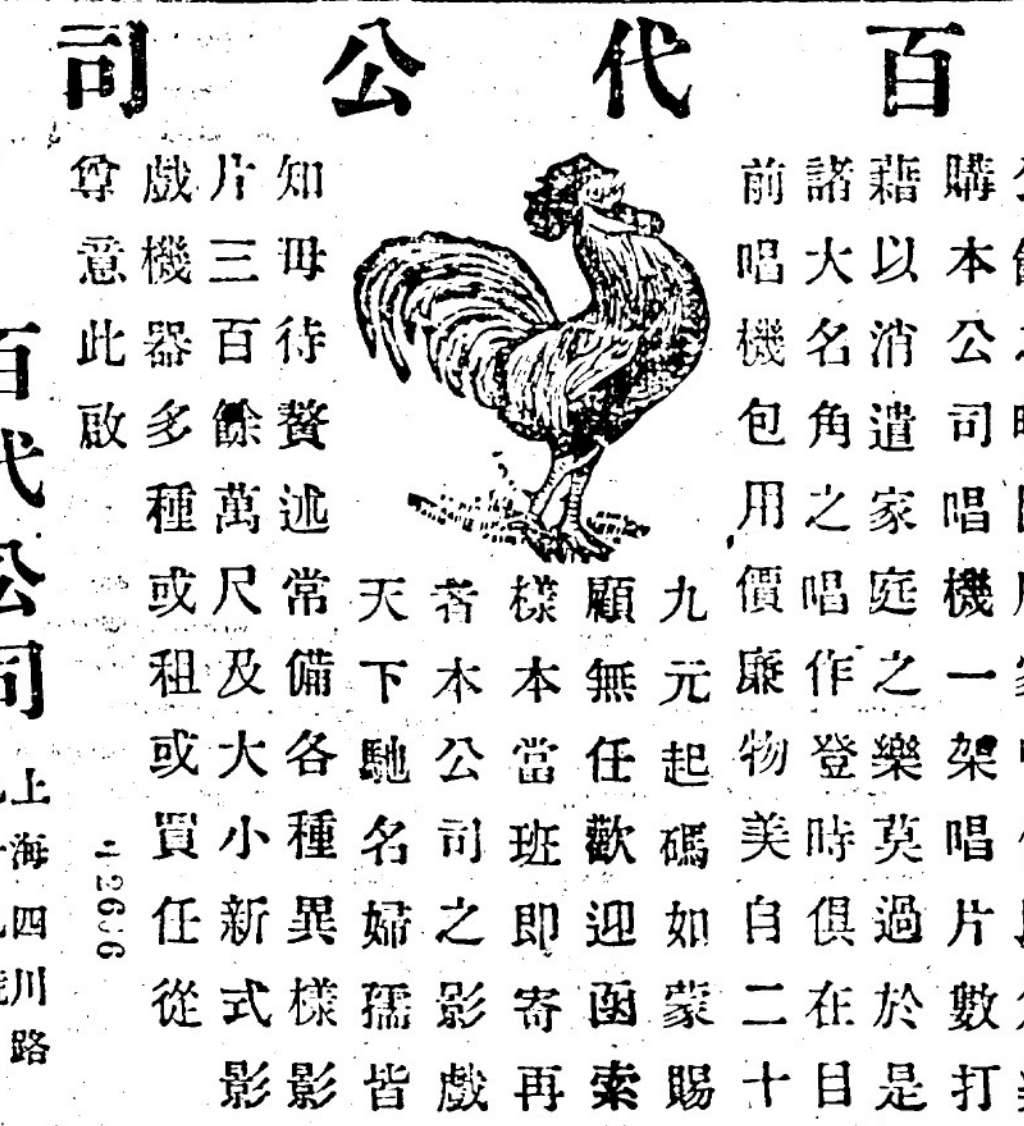 百代公司
購本公司唱機一架唱片數打
藉以消遣家庭之樂莫過於是
諸大名角之唱作登時俱在目
前唱機包用價廉物美自二十
九元起碼如蒙賜
顧無任歡迎函索
樣本當班即寄再
者本公司之影戲
天下馳名婦孺皆
知毋待贅述常備各種異樣影
片三百餘萬尺及大小新式影
戲機器多種或租或買任從
尊意此啟
百代公司
上海四川路